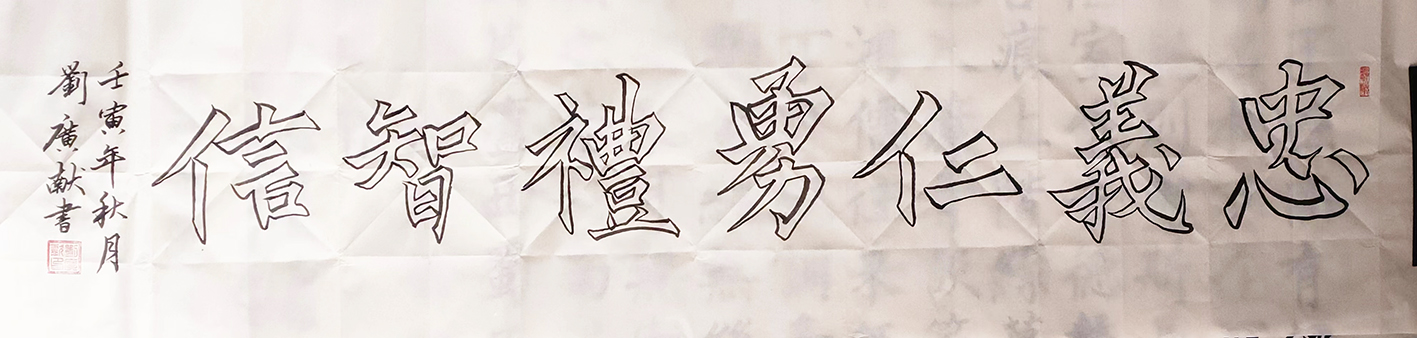 忠義仁勇禮智信
壬寅年秋月
劉廣献書